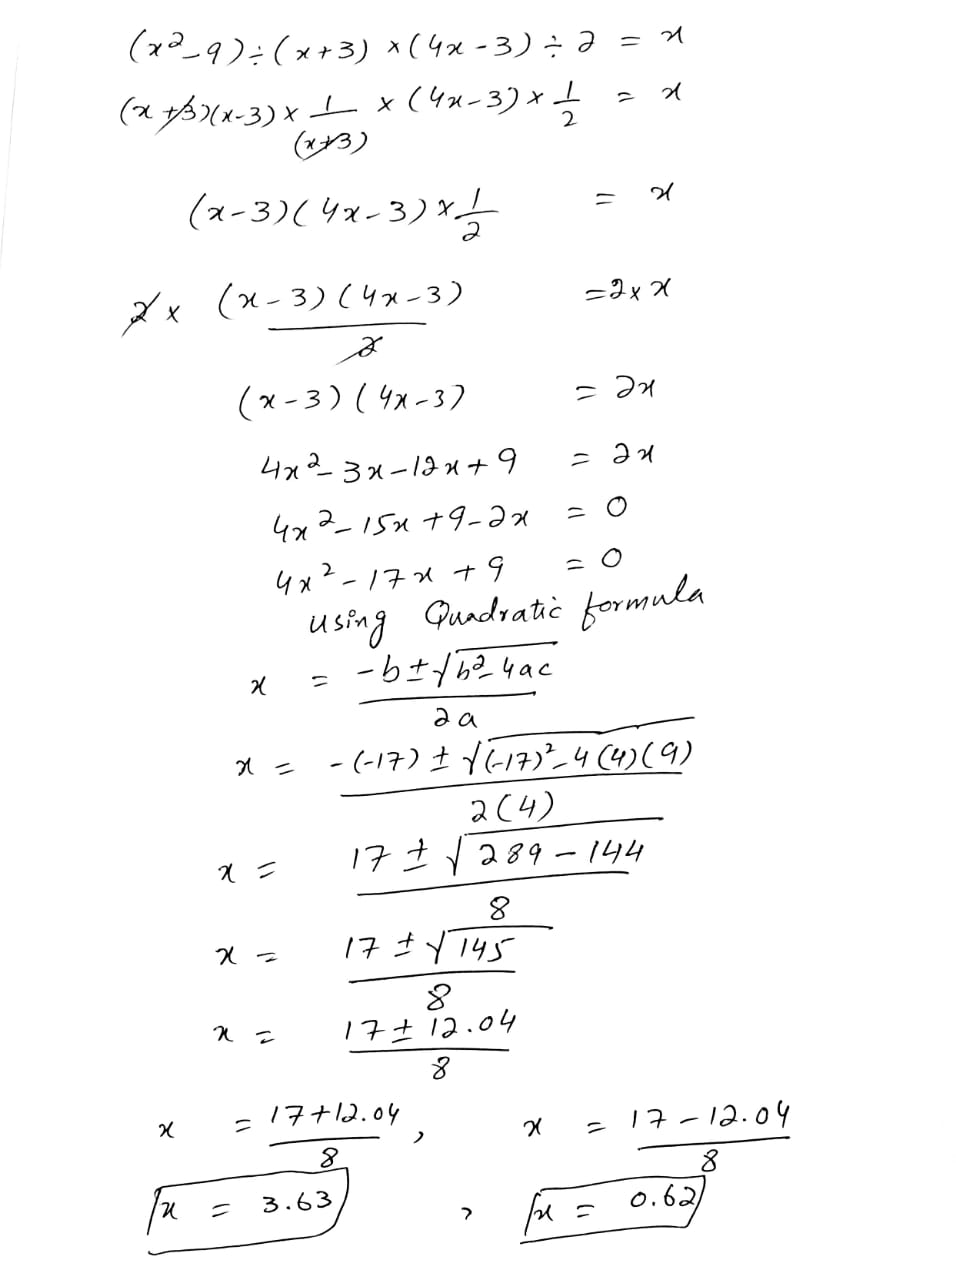 (x²-9)÷(x+3) ×(4x-3)÷2 = x
(x+3)(x-3) × 1/(x+3) × (4x-3) × 1/2 = x
(x-3)(4x-3) × 1/2 = x
2 × (x-3)(4x-3)/2 = 2 × x
(x-3)(4x-3) = 2x
4x²-3x-12x+9 = 2x
4x²-15x+9-2x = 0
4x²-17x+9 = 0
using Quadratic formula
x = -b±√b²-4ac/2a
x = -(-17)±√(-17)²-4(4)(9)/2(4)
x = 17±√289-144/8
x = 17±√145/8
x = 17±12.04/8
x = 17+12.04/8 , x = 17-12.04/8
x = 3.63 , x = 0.62